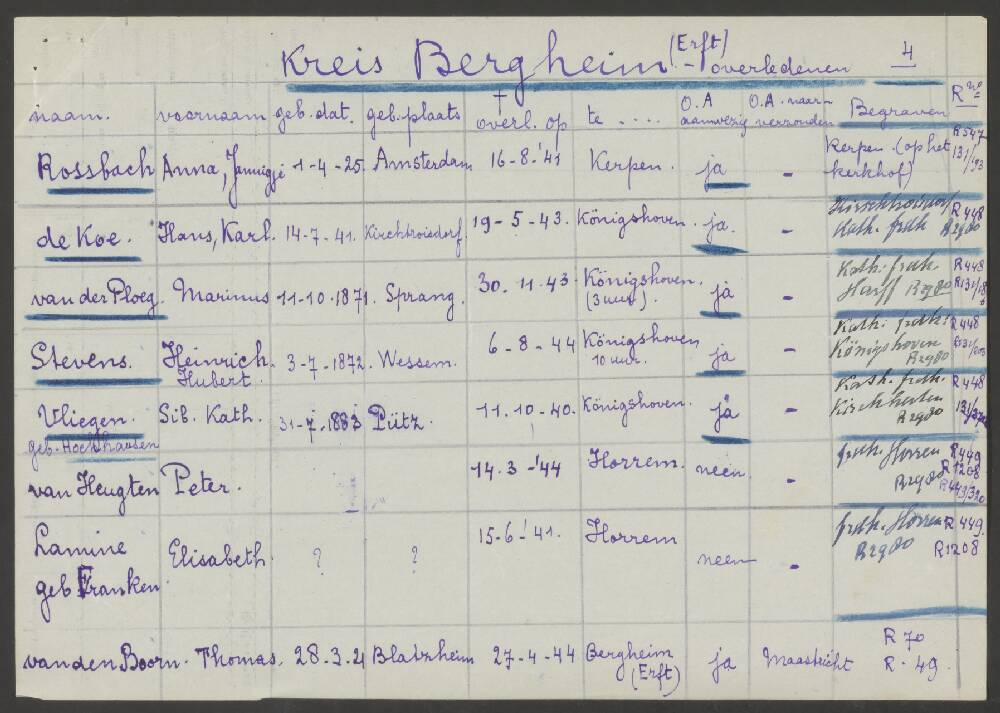 Kreis Bergheim (Erft) - overledenen 4
naam. voornaam geb. dat. geb. plaats † overl. op te .... O.A aanwezig O.A. naar verzonden Begraven R no
Rossbach Anna, Jannigje 1-4-25. Amsterdam 16-8-'41 Kerpen. ja - Kerpen (op het kerkhof) R547 131/93
de Koe. Hans, Karl. 14-7-41. Kirchtroisdorf. 19-5-43. Königshoven. ja. - Kirchtroisdorf Kath. frdh. R448 R2980
van der Ploeg. Marinus 11-10-1871. Sprang. 30.11.43. Königshoven. (3 uur). ja - Kath. frdh. Harff R2980 R448
Stevens. Heinrich Hubert. 3-7-1872. Wessem. 6-8-44 Königshoven 10 uur. ja - Kath. frdh. Königshoven R2980 R448
Vliegen. geb. Hockhausen Sib. Kath. 31-7-1883 Pütz. 11.10-40. Königshoven. ja - Kath. frdh. Kirchherten R2980 R448
van Heugten Peter. 14.3-'44 Horrem. neen. - frdh. Horren R2980 R449 R1208 R443/320
Lamine geb Franken Elisabeth. ? ? 15-6-'41. Horrem neen - frdh. Horren R2980 R449. R1208
van den Boorn. Thomas, 28.3.21 Blatzheim 27-4-44 Bergheim (Erft) ja Maastricht R 70 R. 49.